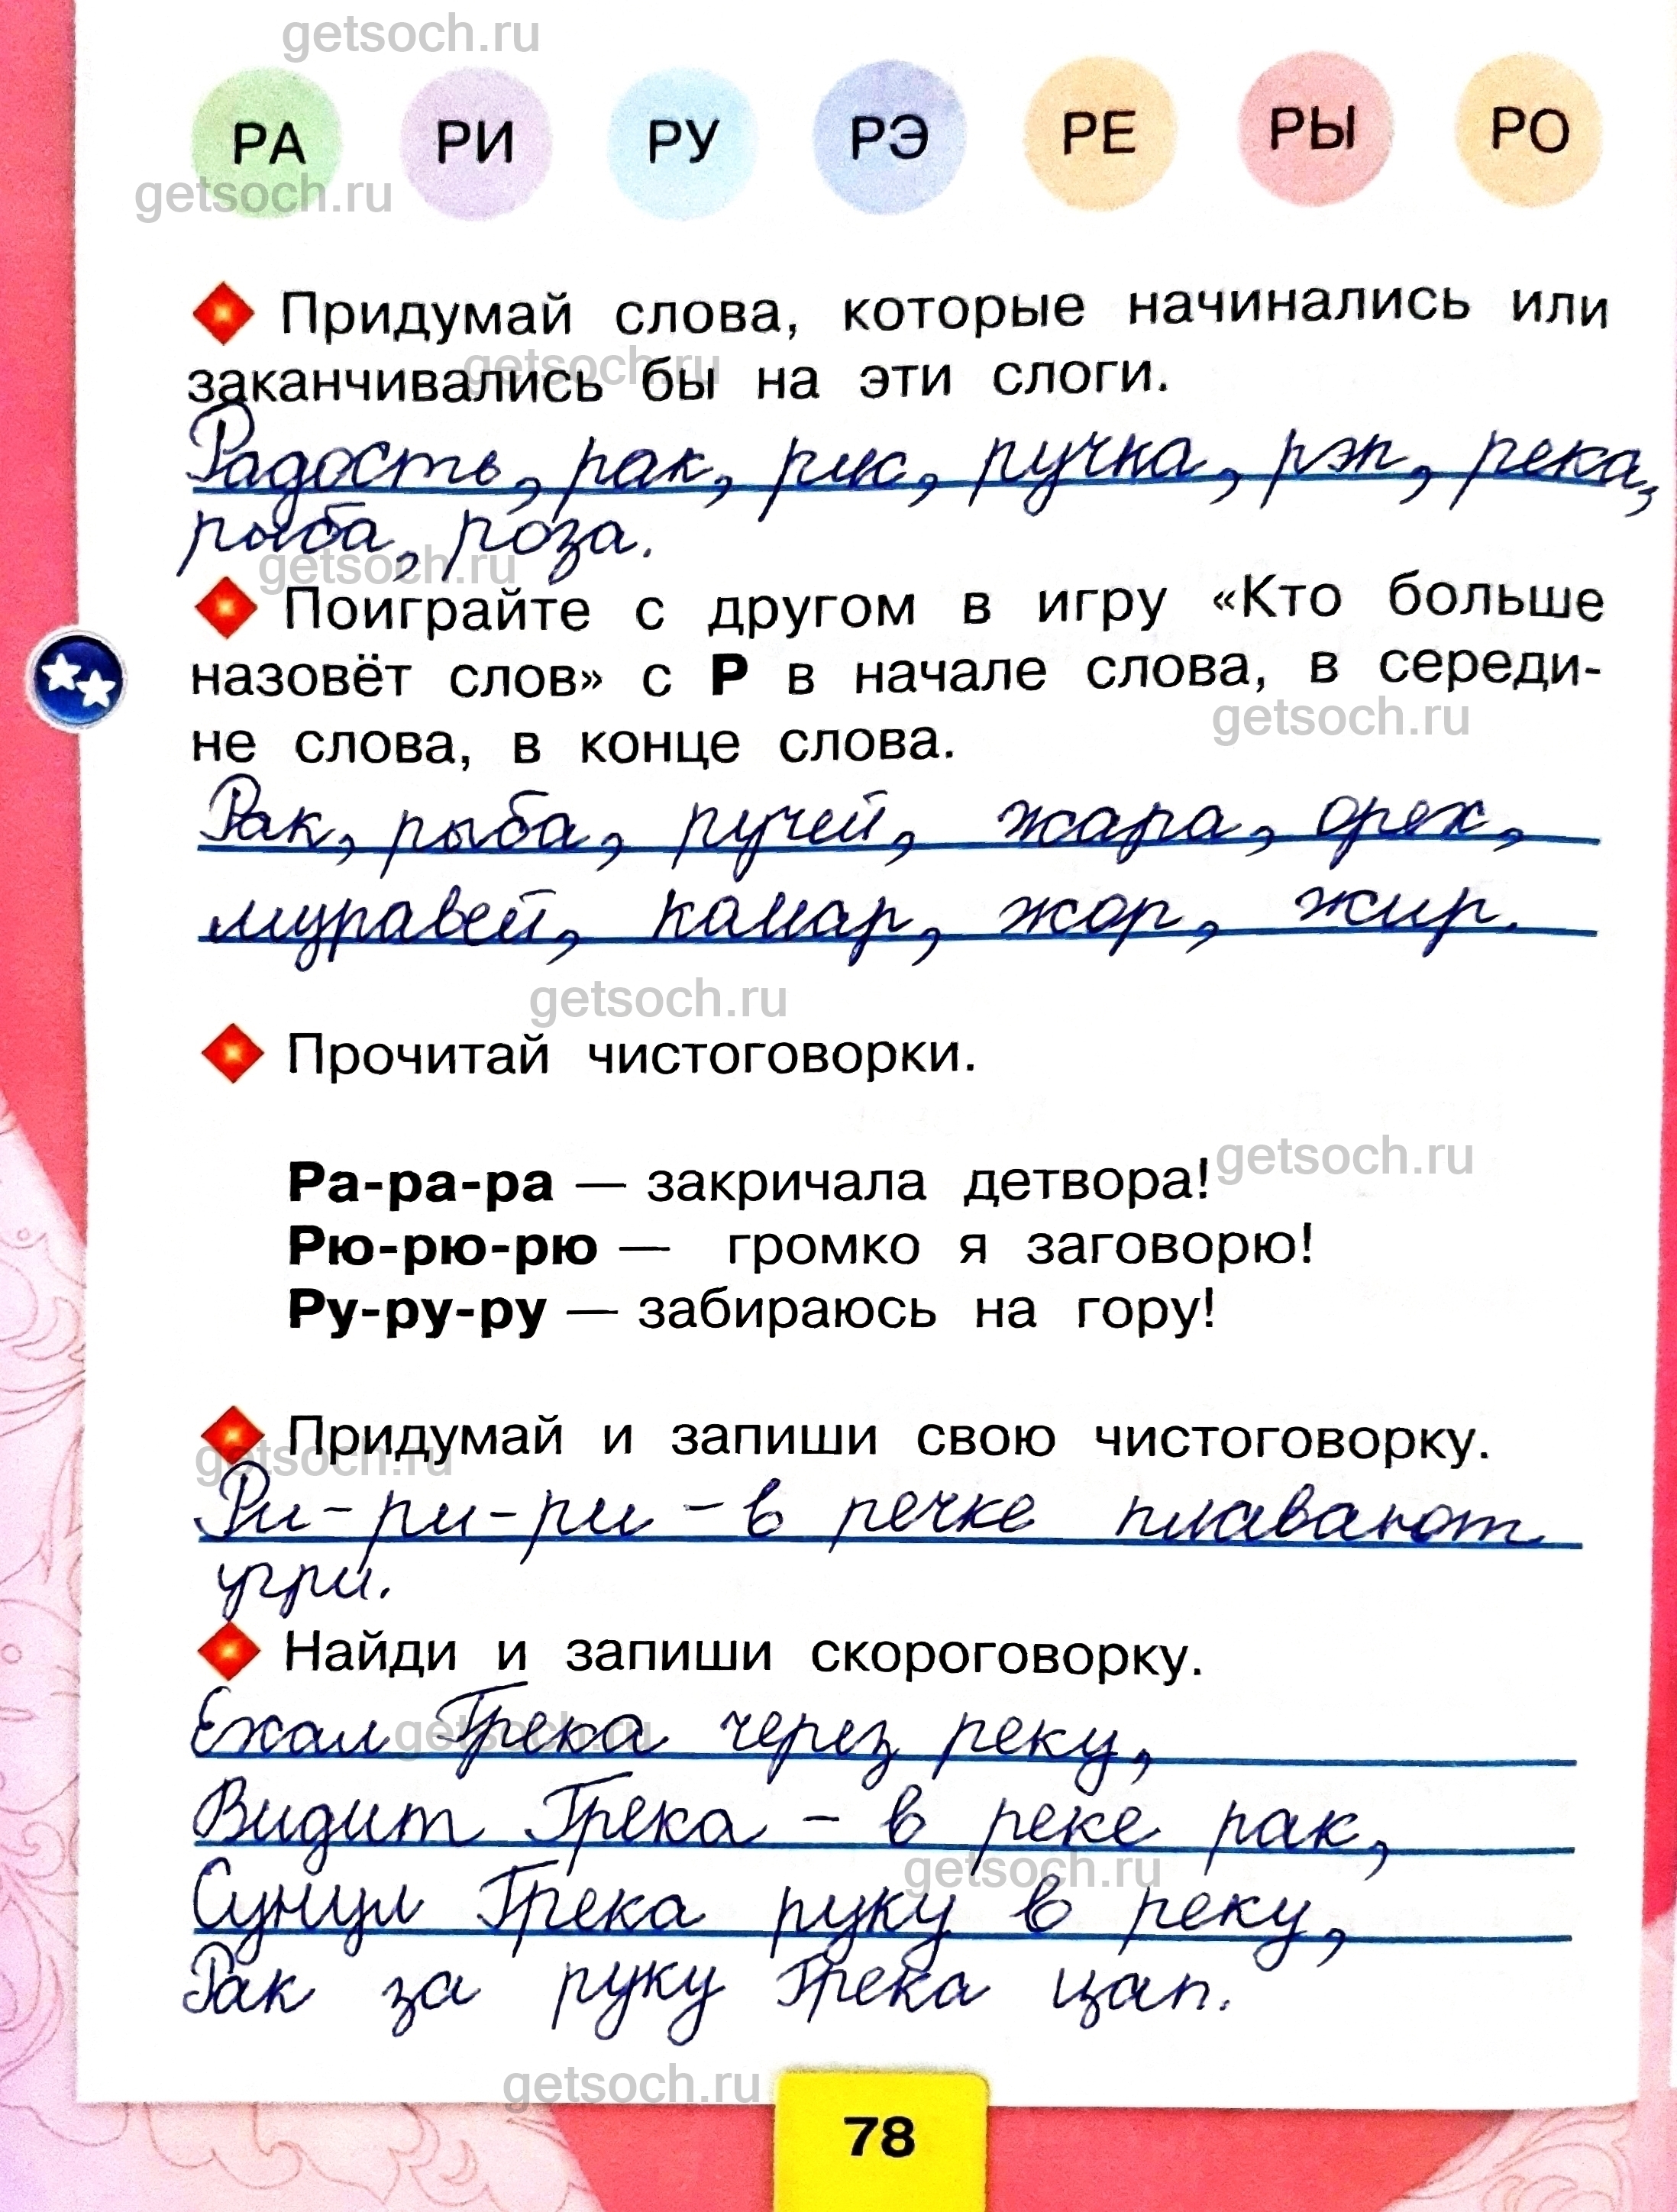 getsoch.ru
РА РИ РУ РЭ РЕ РЫ РО
getsoch.ru
Придумай слова, которые начинались или
getsoch.ru
заканчивались бы на эти слоги.
Радость, рак, рис, ручка, рэп, река,
рыба, роза.
getsoch.ru
Поиграйте с другом в игру «Кто больше
назовёт слов» с Р в начале слова, в середи-
getsoch.ru
не слова, в конце слова.
Рак, рыба, ручей, жара, орех,
муравей, камар, жор, жир.
getsoch.ru
Прочитай чистоговорки.
getsoch.ru
Ра-ра-ра — закричала детвора!
Рю-рю-рю — громко я заговорю!
Ру-ру-ру — забираюсь на гору!
Придумай и запиши свою чистоговорку.
getsoch.ru
Ри-ри-ри - в речке плавают
угри.
Найди и запиши скороговорку.
Ехал Грека через реку,
getsoch.ru
Видит Грека - в реке рак,
getsoch.ru
Сунул Грека руку в реку,
Рак за руку Грека цап.
getsoch.ru
78